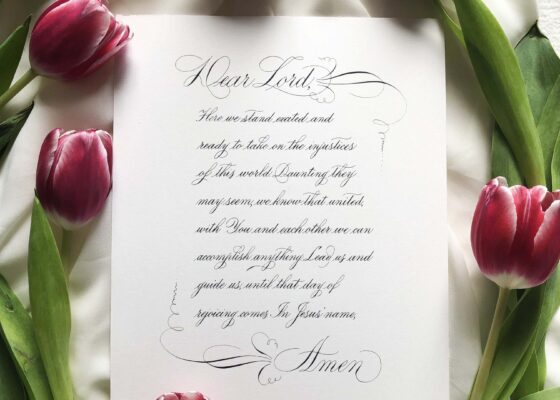 Dear Lord,
Here we stand, united, and
ready to take on the injustices
of this world. Daunting they
may seem, we know that united,
with You and each other we can
accomplish anything. Lead us and
guide us, until that day of
rejoicing comes. In Jesus' name,
Amen